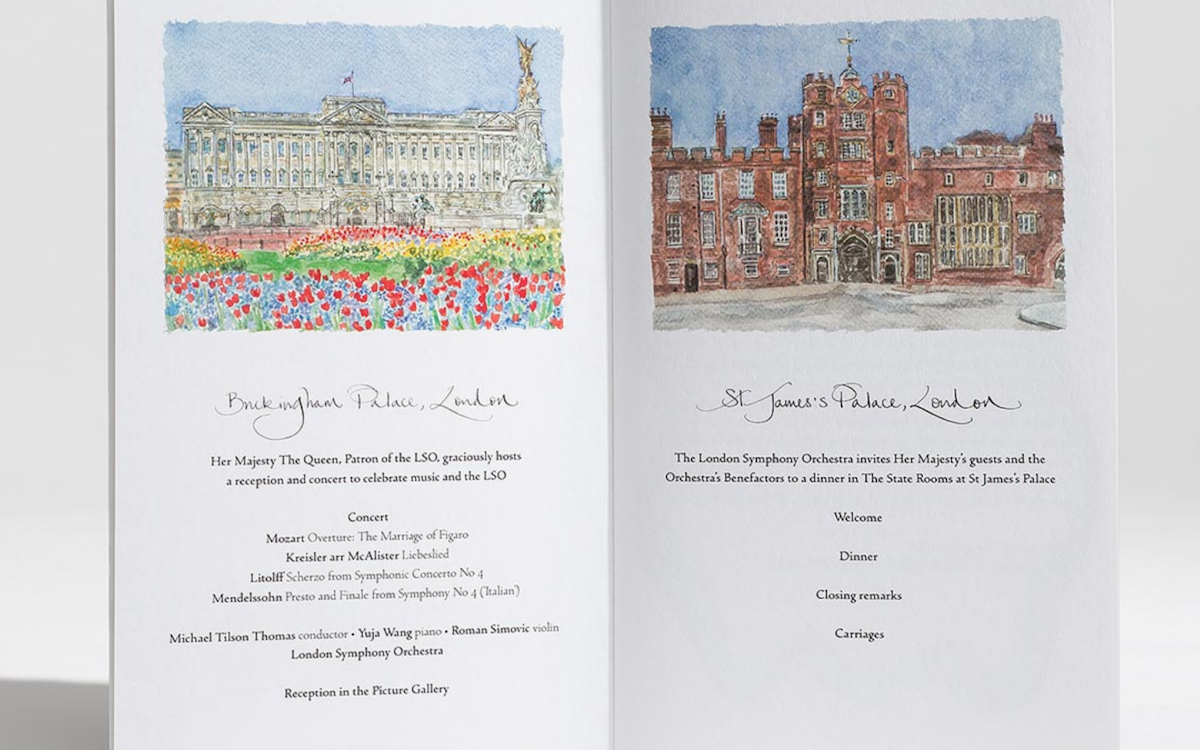 Buckingham Palace, London
Her Majesty The Queen, Patron of the LSO, graciously hosts
a reception and concert to celebrate music and the LSO
Concert
Mozart Overture: The Marriage of Figaro
Kreisler arr McAlister Liebeslied
Litolff Scherzo from Symphonic Concerto No 4
Mendelssohn Presto and Finale from Symphony No 4 ('Italian')
Michael Tilson Thomas conductor • Yuja Wang piano • Roman Simovic violin
London Symphony Orchestra
Reception in the Picture Gallery
St James's Palace, London
The London Symphony Orchestra invites Her Majesty's guests and the
Orchestra's Benefactors to a dinner in The State Rooms at St James's Palace
Welcome
Dinner
Closing remarks
Carriages